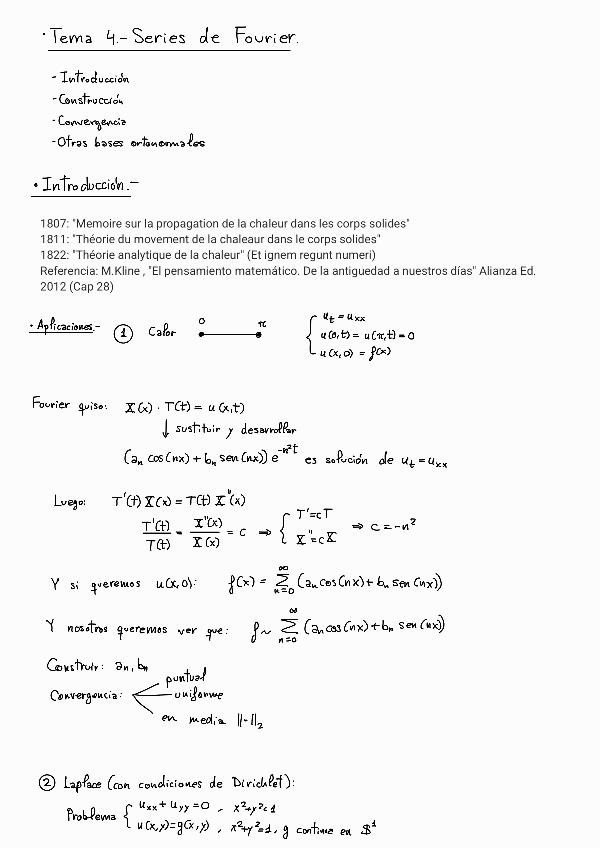 · Tema 4.- Series de Fourier.
- Introducción
- Construcción
- Convergencia
- Otras bases ortonormales
• Introducción.-
1807: "Memoire sur la propagation de la chaleur dans les corps solides"
1811: "Théorie du movement de la chaleaur dans le corps solides"
1822: "Théorie analytique de la chaleur" (Et ignem regunt numeri)
Referencia: M.Kline , "El pensamiento matemático. De la antiguedad a nuestros días" Alianza Ed.
2012 (Cap 28)
· Aplicaciones.- ① Calor 0 π { u_t = u_xx
u(0,t) = u(π,t) = 0
u(x,0) = f(x)
Fourier quiso: X(x) · T(t) = u(x,t)
↓ sustituir y desarrollar
(a_n cos(nx) + b_n sen(nx)) e^{-n²t} es solución de u_t = u_xx
Luego: T'(t) X(x) = T(t) X''(x)
T'(t)/T(t) = X''(x)/X(x) = c ⇒ { T' = cT
X'' = cX ⇒ c = -n²
Y si queremos u(x,0): f(x) = ∑_{n=0}^∞ (a_n cos(nx) + b_n sen(nx))
Y nosotros queremos ver que: f ~ ∑_{n=0}^∞ (a_n cos(nx) + b_n sen(nx))
Construir: a_n, b_n
Convergencia: puntual
uniforme
en media ||·||_2
② Laplace (con condiciones de Dirichlet):
Problema { u_xx + u_yy = 0 , x²+y²<1
u(x,y) = g(x,y) , x²+y²=1, g continua en S¹